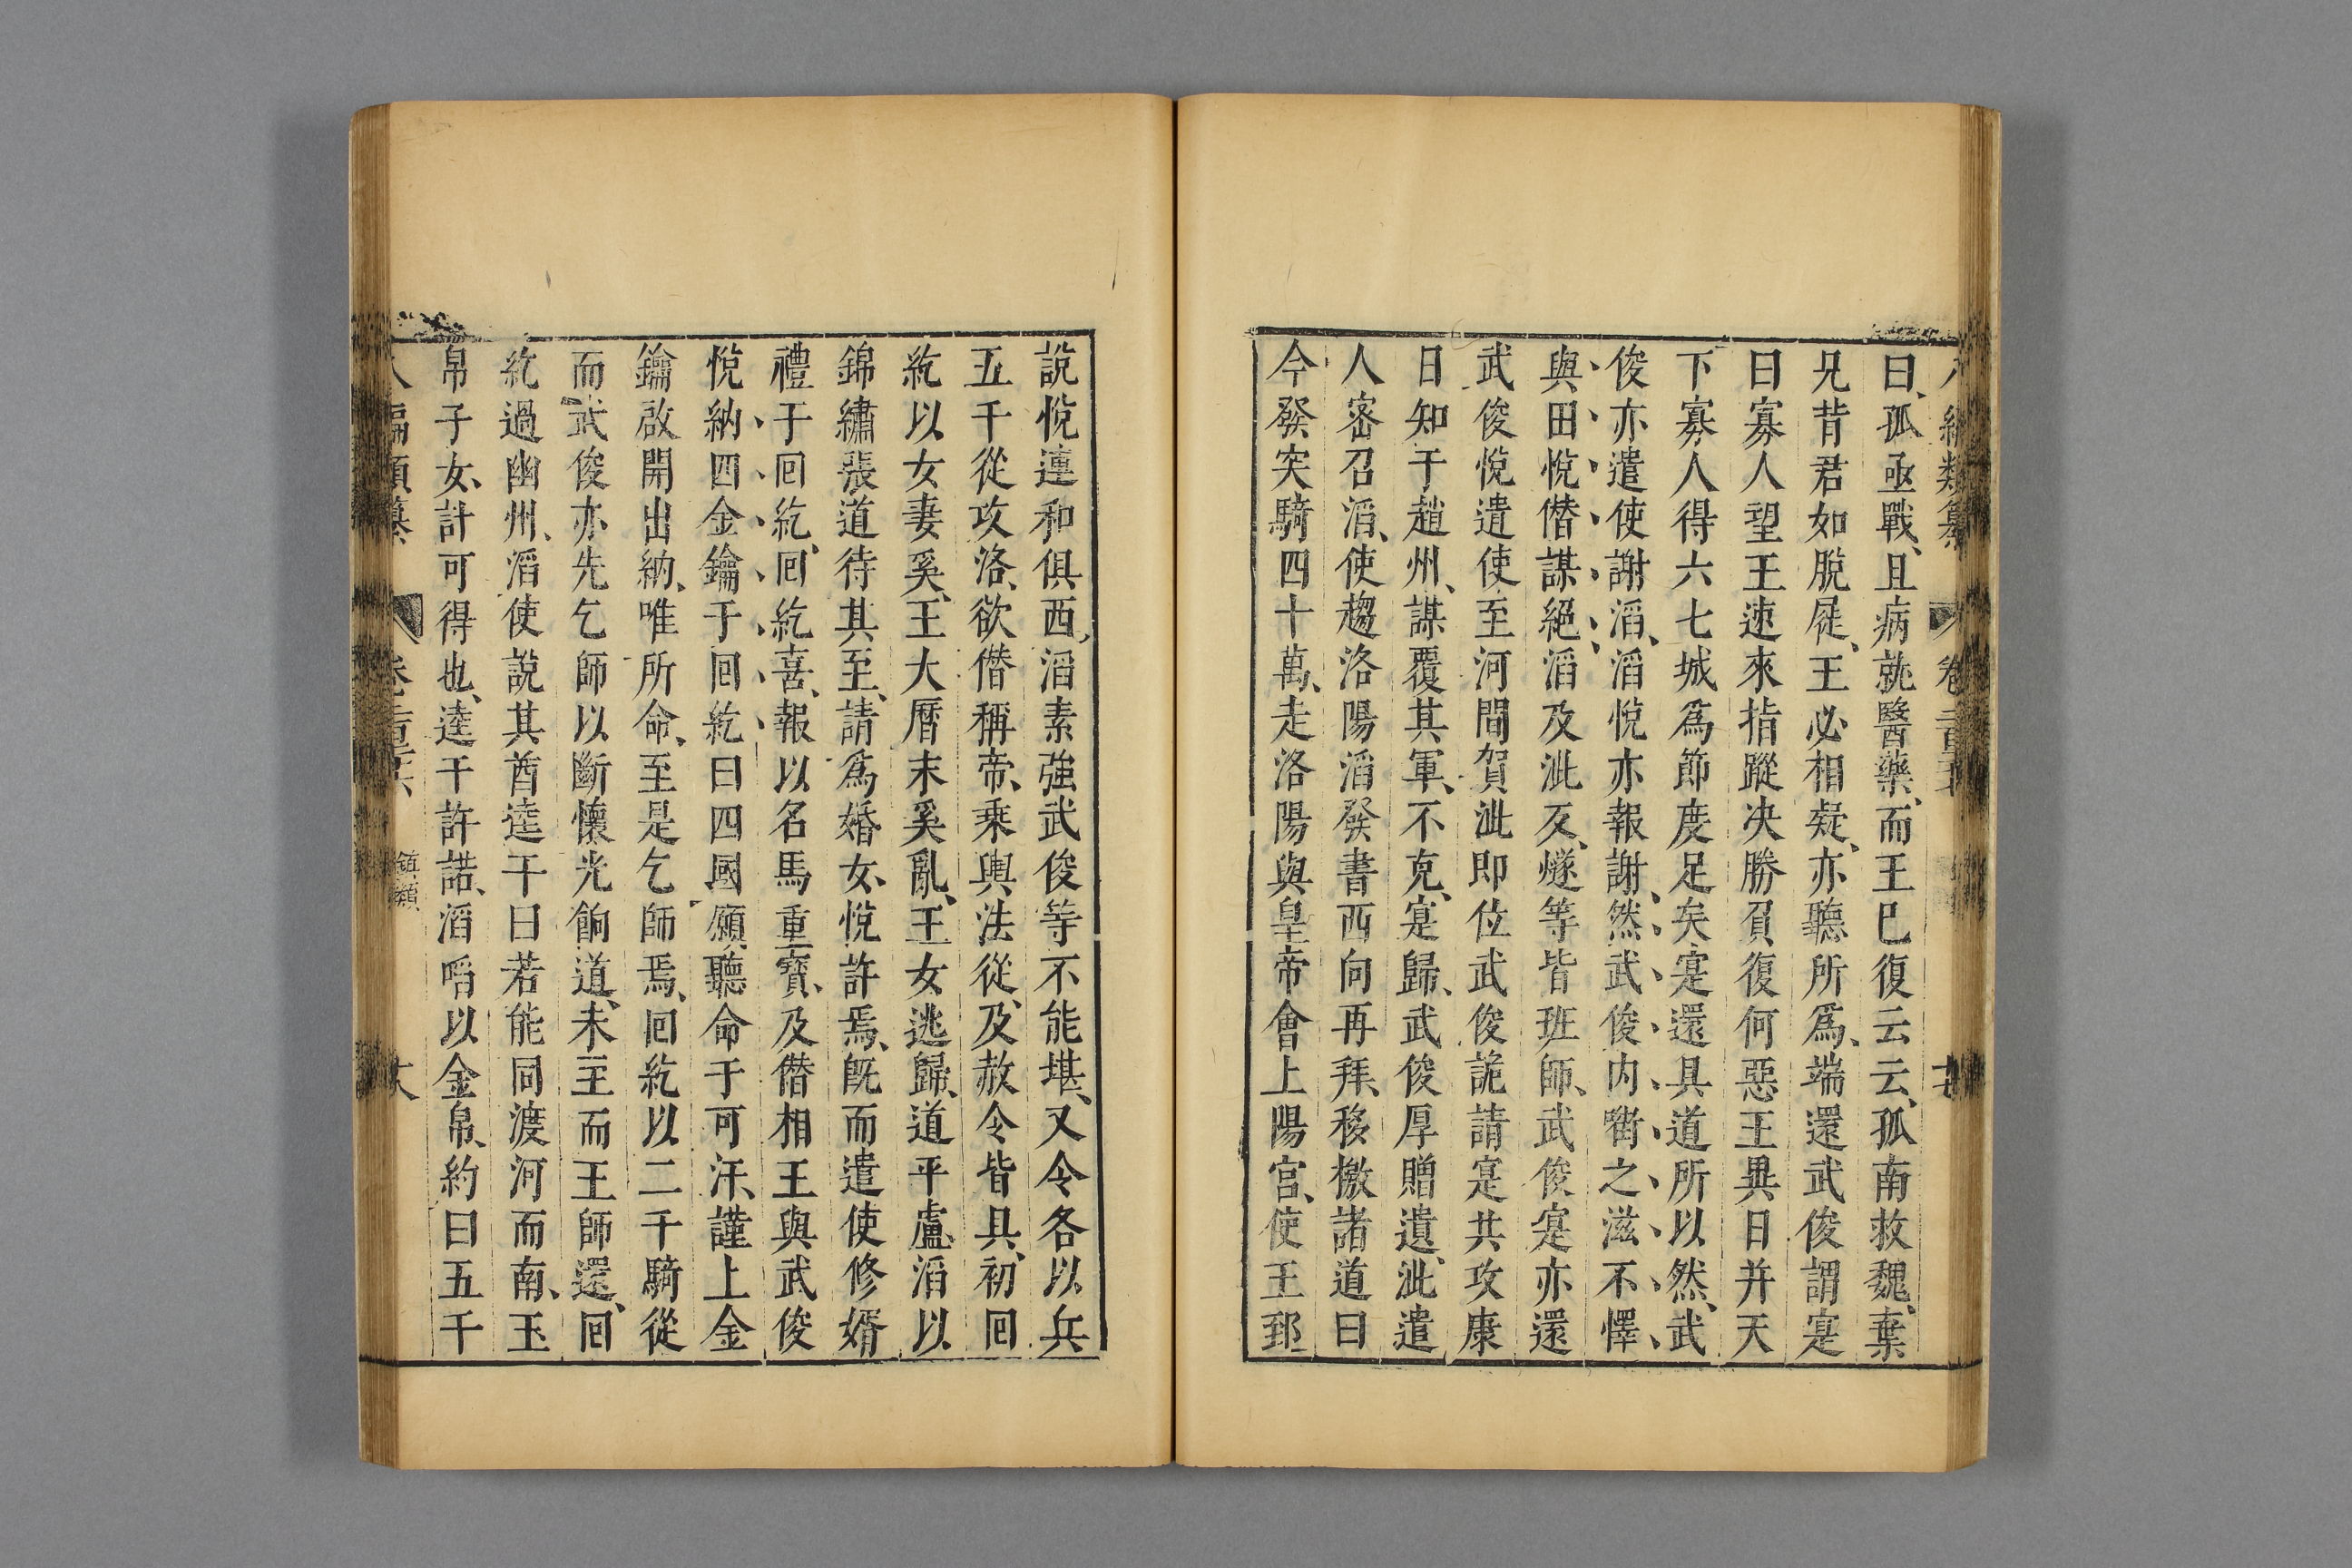 曰、孤亟戰、且病就醫藥、而王已復云云、孤南救魏、棄
兄背君如脫屣、王必相疑、亦聽所爲、端還武俊謂寔
曰寡人望王速來指蹤决勝負復何惡王異日并天
下寡人得六七城爲節度足矣寔還具道所以然、武
俊亦遣使謝滔、滔悅亦報謝、然武俊内銜之滋不懌
與田悅僭謀絕滔及泚反、燧等皆班師、武俊寔亦還
武俊悅遣使至河間賀泚即位武俊詭請寔共攻康
日知于趙州、謀覆其軍、不克、寔歸、武俊厚贈遺、泚遣
人密召滔、使趨洛陽滔發書西向再拜、移檄諸道曰
今發突騎四十萬、走洛陽與皇帝會上陽宮、使王郅
說悅連和俱西、滔素強武俊等不能堪、又令各以兵
五千從攻洛、欲僭稱帝、乘輿法從、及赦令皆具、初囘
紇以女妻奚、王大曆末奚亂、王女逃歸、道平盧、滔以
錦繡張道待其至、請爲婚女、悅許焉、旣而遣使修婿
禮于囘紇、囘紇喜、報以名馬重寶、及僭相王與武俊
悅納四金鑰于囘紇曰四國願聽命于可汗、謹上金
鑰啟開出納、唯所命、至是乞師焉、囘紇以二千騎從
而武俊亦先乞師以斷懷光餉道、未至而王師還、囘
紇過幽州、滔使說其酋達干曰若能同渡河而南、玉
帛子女、計可得也、達干許諾、滔啗以金帛、約曰五千